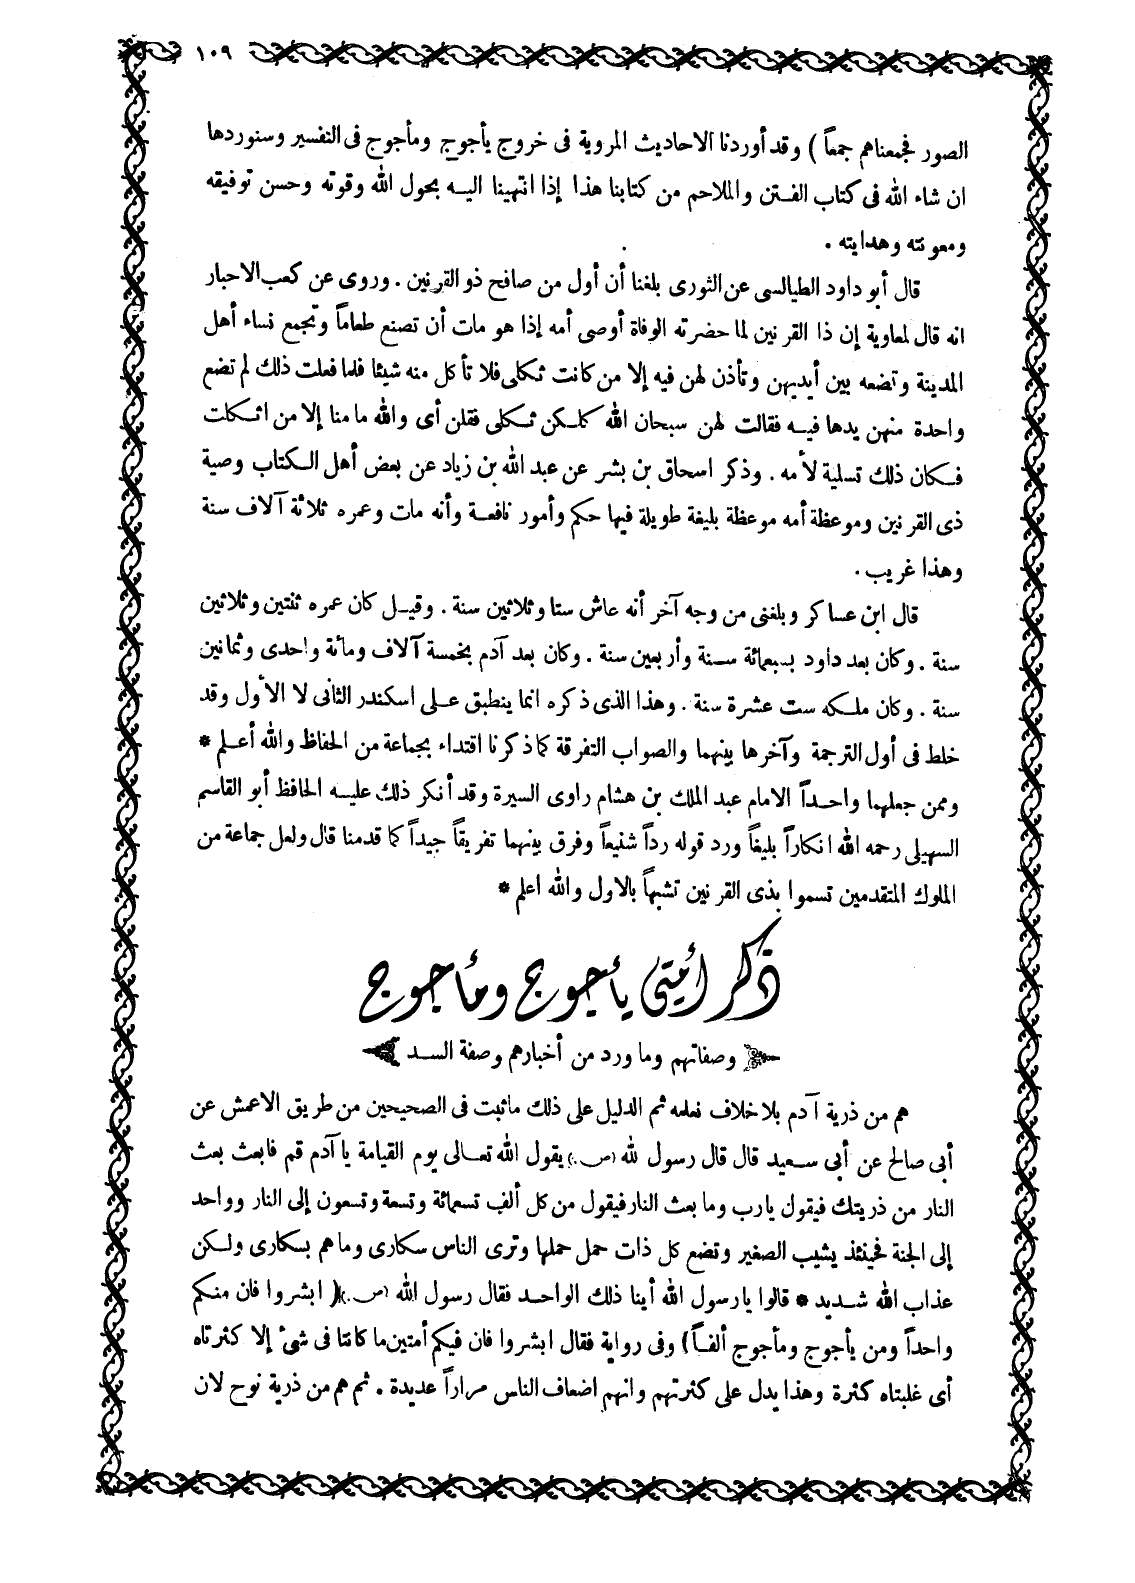 ١٠٩
الصور فجمعناهم جمعاً ) وقد أوردنا الاحاديث المروية فى خروج يأجوج ومأجوج فى التفسير وسنوردها
ان شاء الله فى كتاب الفتن والملاحم من كتابنا هذا إذا انتهينا اليه بحول الله وقوته وحسن توفيقه
ومعونته وهدايته .
قال أبو داود الطيالسى عن الثورى بلغنا أن أول من صافح ذو القرنين . وروى عن كعب الاحبار
انه قال لمعاوية إن ذا القرنين لما حضرته الوفاة أوصى أمه إذا هو مات أن تصنع طعاماً وتجمع نساء أهل
المدينة وتضعه بين أيديهن وتأذن لهن فيه إلا من كانت ثكلى فلا تأكل منه شيئا فلما فعلت ذلك لم تضع
واحدة منهن يدها فيه فقالت لهن سبحان الله كلكن ثكلى فقلن أى والله ما منا إلا من اثكلت
فكان ذلك تسلية لأمه . وذكر اسحاق بن بشر عن عبد الله بن زياد عن بعض أهل الكتاب وصية
ذى القرنين وموعظة أمه موعظة بليغة طويلة فيها حكم وأمور نافعة وأنه مات وعمره ثلاثة آلاف سنة
وهذا غريب .
قال ابن عساكر وبلغنى من وجه آخر أنه عاش ستا وثلاثين سنة . وقيل كان عمره ثنتين وثلاثين
سنة . وكان بعد داود بسبعمائة سنة وأربعين سنة . وكان بعد آدم بخمسة آلاف ومائة واحدى وثمانين
سنة . وكان ملكه ست عشرة سنة . وهذا الذى ذكره انما ينطبق على اسكندر الثانى لا الأول وقد
خلط فى أول الترجمة وآخرها بينهما والصواب التفرقة كما ذكرنا اقتداء بجماعة من الحفاظ والله أعلم *
وممن جعلهما واحداً الامام عبد الملك بن هشام راوى السيرة وقد أنكر ذلك عليه الحافظ أبو القاسم
السهيلى رحمه الله انكاراً بليغاً ورد قوله رداً شنيعاً وفرق بينهما تفريقاً جيداً كما قدمنا قال ولعل جماعة من
الملوك المتقدمين تسموا بذى القرنين تشبهاً بالاول والله اعلم *
ذكر أمتى يأجوج ومأجوج
وصفاتهم وما ورد من أخبارهم وصفة السد
هم من ذرية آدم بلا خلاف نعلمه ثم الدليل على ذلك ماثبت فى الصحيحين من طريق الاعمش عن
أبى صالح عن أبى سعيد قال قال رسول لله (ص.) يقول الله تعالى يوم القيامة يا آدم قم فابعث بعث
النار من ذريتك فيقول يارب وما بعث النار فيقول من كل ألف تسعمائة وتسعة وتسعون إلى النار وواحد
إلى الجنة فحينئذ يشيب الصغير وتضع كل ذات حمل حملها وترى الناس سكارى وما هم بسكارى ولكن
عذاب الله شديد * قالوا يارسول الله أينا ذلك الواحد فقال رسول الله (ص.)( ابشروا فان منكم
واحداً ومن يأجوج ومأجوج ألفاً ) وفى رواية فقال ابشروا فان فيكم أمتين ما كانتا فى شئ إلا كثرتاه
أى غلبتاه كثرة وهذا يدل على كثرتهم وانهم اضعاف الناس مراراً عديدة . ثم هم من ذرية نوح لان